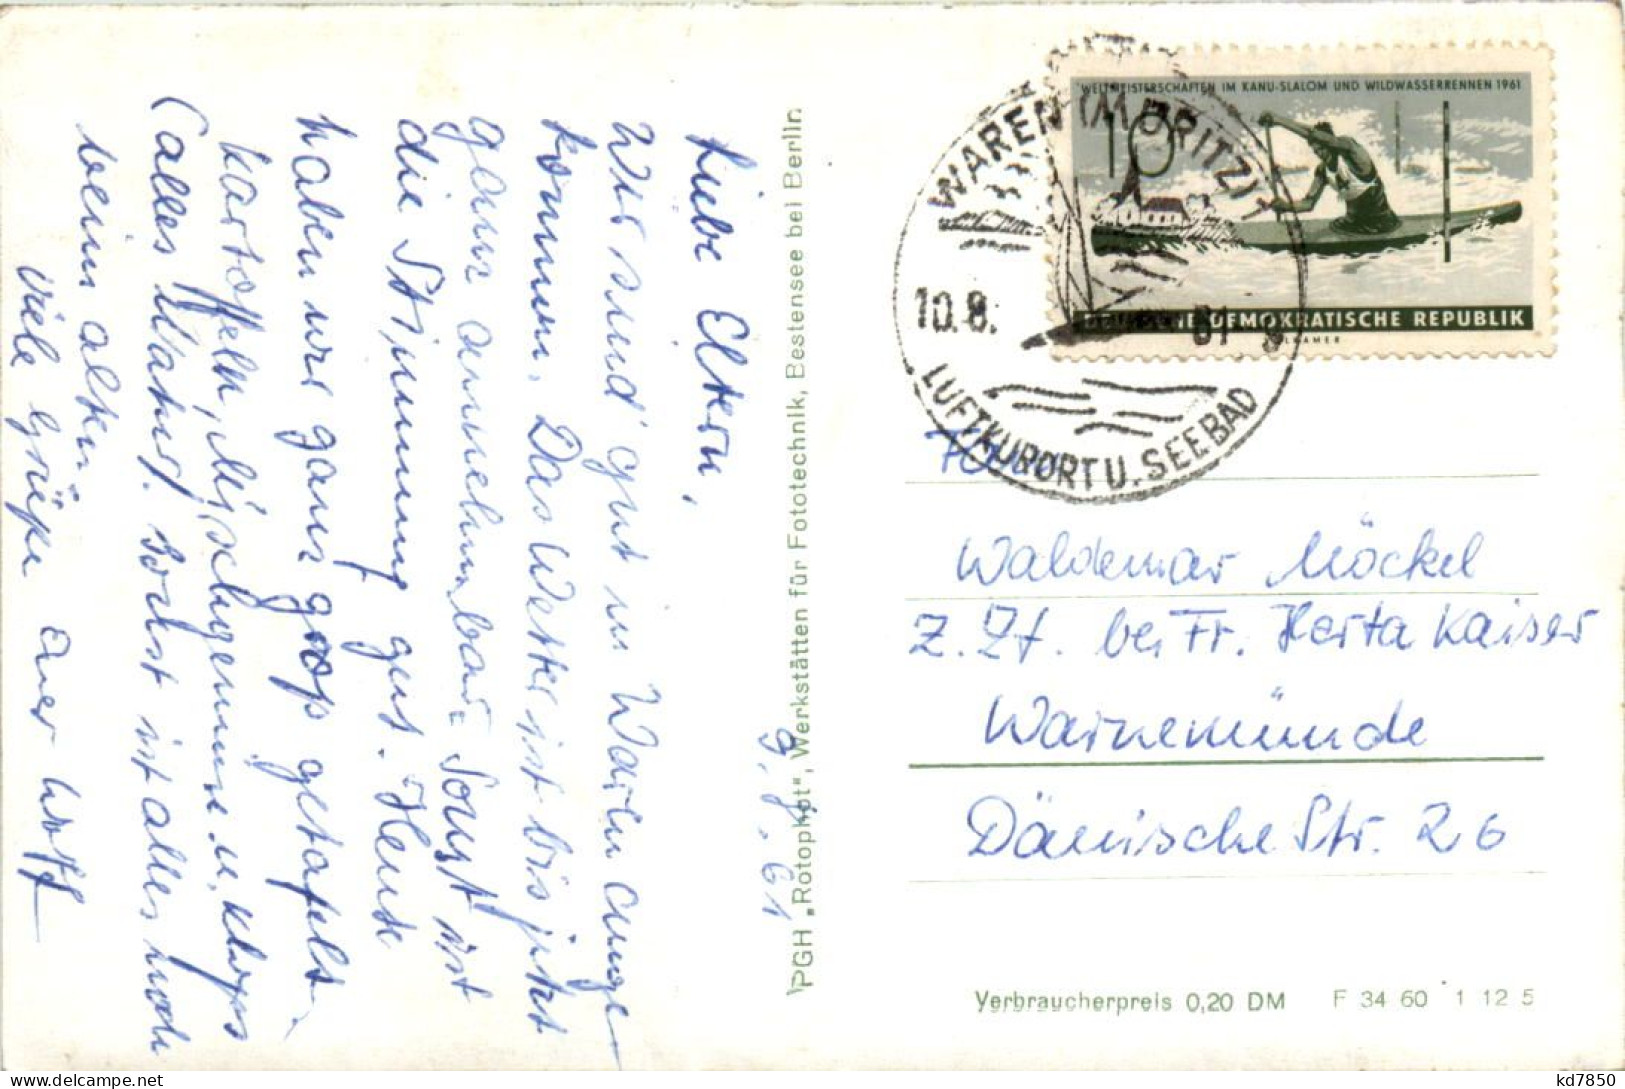 9.8.61
Liebe Eltern,
Wir sind gut in Waren ange-
kommen. Das Wetter ist bis jetzt
ganz annehmbar. Sonst ist
die Stimmung gut. Heute
haben wir ganz groß getafelt.
Kartoffeln, Mischgemüse u. Klops
(alles Natur). Sonst ist alles noch
beim alten.
Viele Grüße Euer Wolf
PGH „Rotophot“, Werkstätten für Fototechnik, Bestensee bei Berlin
WELTMEISTERSCHAFTEN IM KANU-SLALOM UND WILDWASSERRENNEN 1961
10
DEUTSCHE DEMOKRATISCHE REPUBLIK
WAREN (MÜRITZ) 1
10.8. 61
LUFTKURORT U. SEEBAD
Waldemar Möckel
z. Zt. bei Fr. Herta Kaiser
Warnemünde
Dänische Str. 26
Verbraucherpreis 0,20 DM F 34 60 1 12 5
kd7850